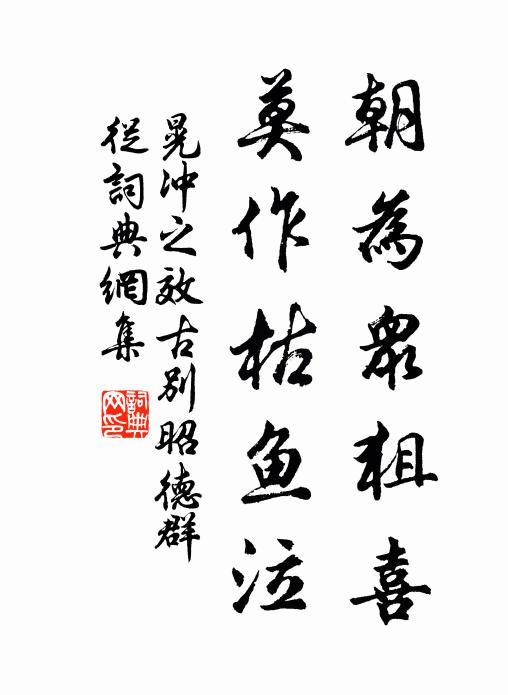 朝為眾狙喜
莫作枯魚泣
晁沖之效古別昭德群
從詞典網集
詞典网印